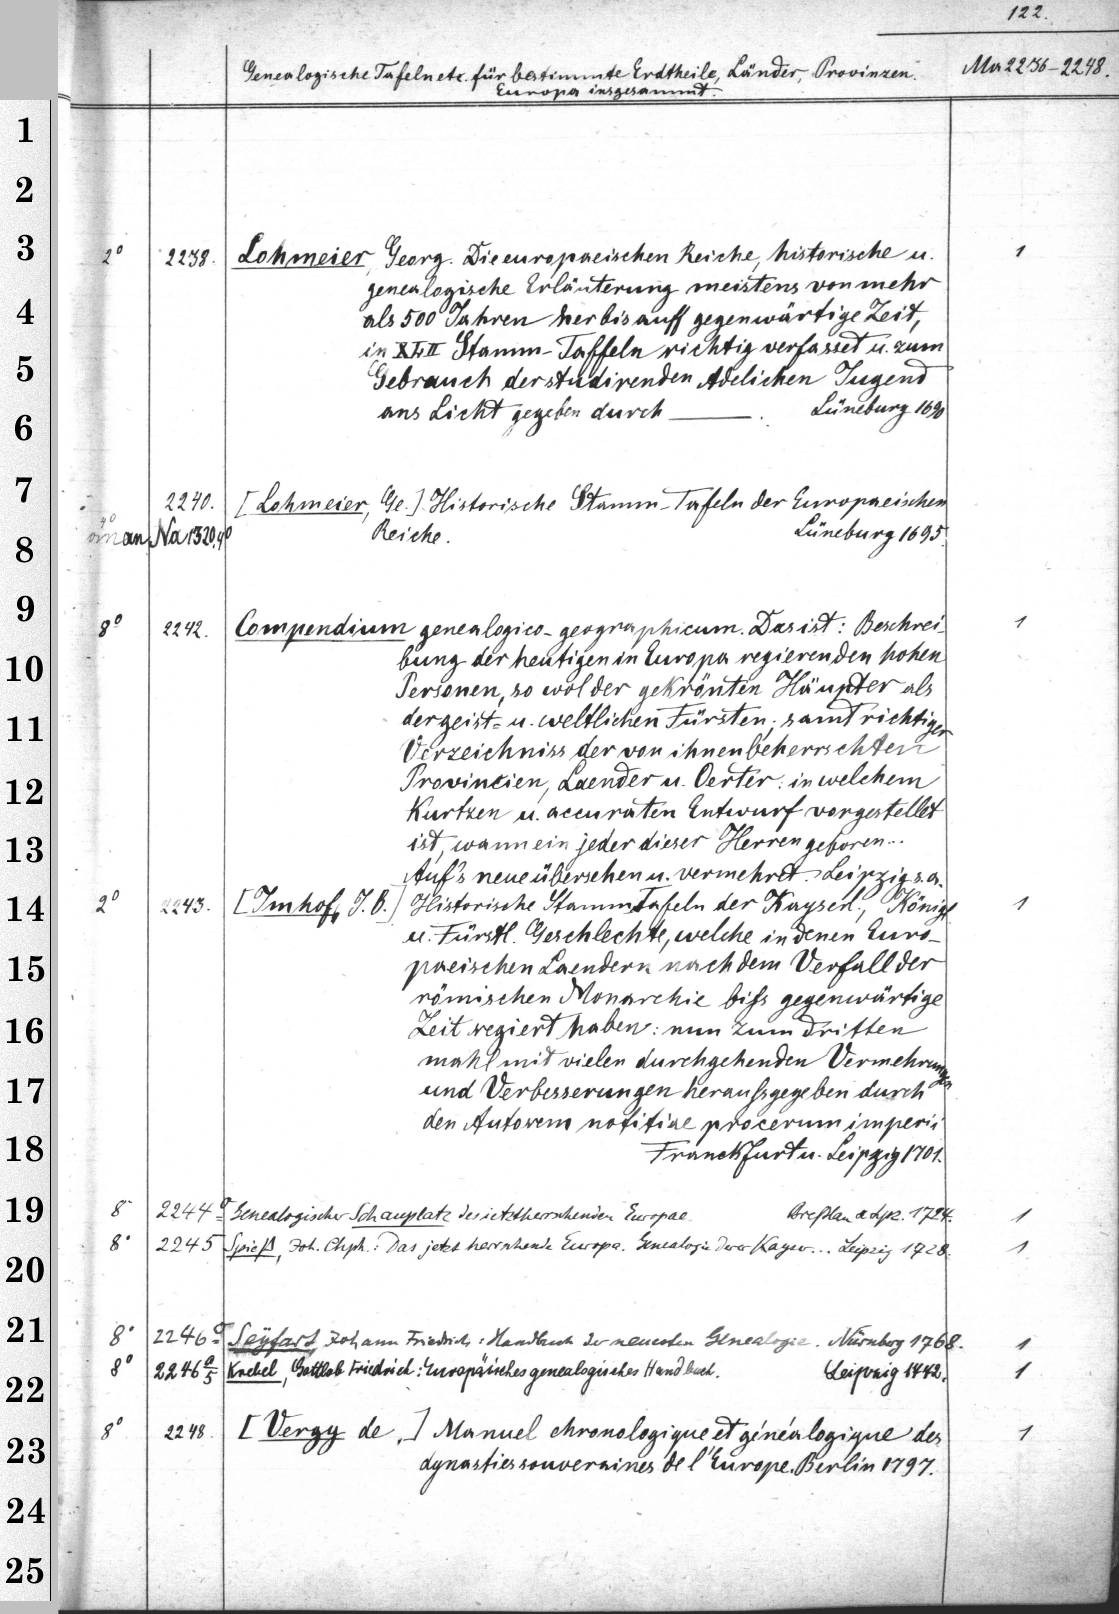 122.
Genealogische Tafeln etc. für bestimmte Erdtheile, Länder, Provinzen. Ma 2236-2248.
Europa insgesammt.
1
2
3 2° 2238. Lohmeier, Georg. Die europaeischen Reiche, historische u. 1
genealogische Erläuterung meistens von mehr
4 als 500 Jahren her bis auff gegenwärtige Zeit,
in XLII Stamm-Taffeln richtig verfasset u. zum
5 Gebrauch der studirenden Adelichen Jugend
6 ans Licht gegeben durch ———. Lüneburg 1690
7 2240. [Lohmeier, Ge.] Historische Stamm-Tafeln der Europaeischen
8 4° an an Na 1320, 4° Reiche. Lüneburg 1695.
9 8° 2242. Compendium genealogico-geographicum. Das ist: Beschrei- 1
10 bung der heutigen in Europa regierenden hohen
Personen, so wol der gekrönten Häupter als
11 der geist- u. weltlichen Fürsten; samt richtiger
Verzeichniss der von ihnen beherrschten
12 Provincien, Laender u. Oerter: in welchem
Kurtzen u. accuraten Entwurf vorgestellet
13 ist, wann ein jeder dieser Herren geboren...
Auf's neue übersehen u. vermehret. Leipzig s.a.
14 2° 2243. [Imhof, J. B.] Historische StammTafeln der Kayserl., Königl. 1
u. Fürstl. Geschlechte, welche in denen Euro-
15 paeischen Laendern nach dem Verfall der
römischen Monarchie biss gegenwärtige
16 Zeit regiert haben: nun zum dritten
mahl mit vielen durchgehenden Vermehrungen
17 und Verbesserungen heraussgegeben durch
den Autorem notitiae procerum imperii
18 Franckfurt u. Leipzig 1701.
19 8° 2244 a Genealogischer Schauplatz des ietztherrschenden Europae Breßlau & Lpz. 1724. 1
8° 2245 Spieß, Joh. Chph.: Das jetzt herrschende Europa. Genealogie derer Kayser... Leipzig 1728. 1
20
21 8° 2246 a Seyfart, Johann Friedrich: Handbuch der neuesten Genealogie. Nürnberg 1768. 1
22 8° 2246 a/5 Krebel, Gottlob Friedrich: Europäisches genealogisches Handbuch. Leipzig 1772. 1
23 8° 2248. [Vergy de,] Manuel chronologique et généalogique des 1
dynasties souveraines de l'Europe. Berlin 1797.
24
25